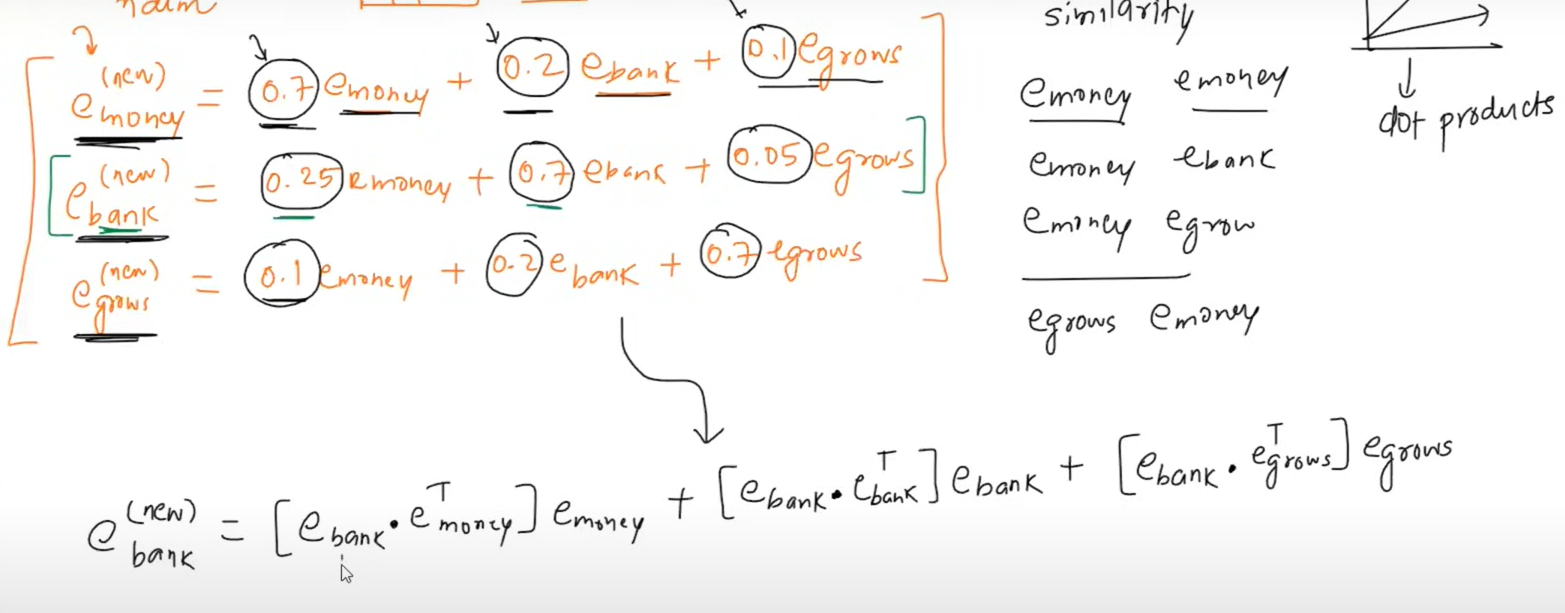 e money (new) = 0.7 e money + 0.2 e bank + 0.1 e grows
e bank (new) = 0.25 e money + 0.7 e bank + 0.05 e grows
e grows (new) = 0.1 e money + 0.2 e bank + 0.7 e grows
similarity
e money e money
e money e bank
e money e grow
e grows e money
dot products
e bank (new) = [e bank . e money T] e money + [e bank . e bank T] e bank + [e bank . e grows T] e grows